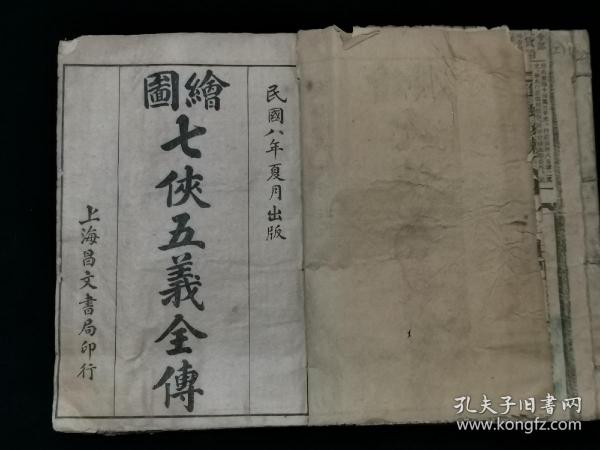 民國八年夏月出版
繪圖
七俠五義全傳
上海昌文書局印行
孔夫子旧书网
www.kongfz.com